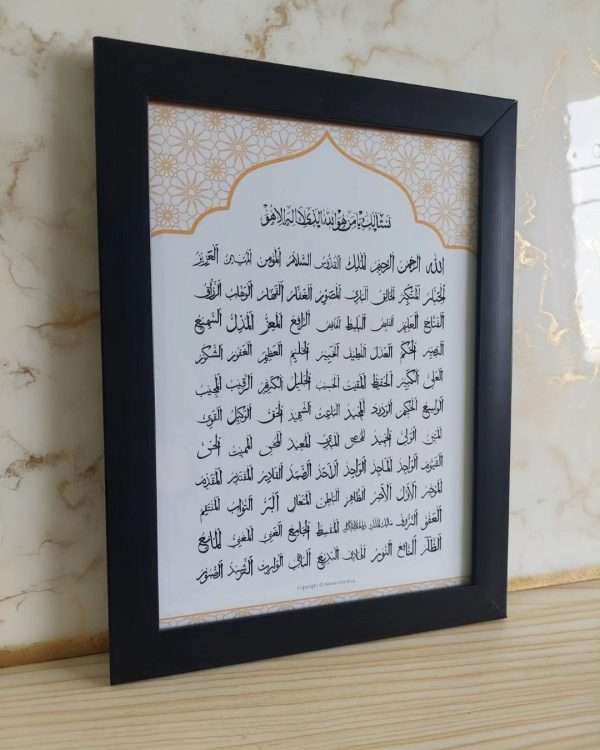 نسألك يا من هو الله الذي لا إله إلا هو
الله الرحمن الرحيم الملك القدوس السلام المؤمن المهيمن العزيز
الجبار المتكبر الخالق البارئ المصور الغفار القهار الوهاب الرزاق
الفتاح العليم القابض الباسط الخافض الرافع المعز المذل السميع
البصير الحكم العدل اللطيف الخبير الحليم العظيم الغفور الشكور
العلي الكبير الحفيظ المقيت الحسيب الجليل الكريم الرقيب المجيب
الواسع الحكيم الودود المجيد الباعث الشهيد الحق الوكيل القوي
المتين الولي الحميد المحصي المبدئ المعيد المحيي المميت الحي
القيوم الواجد الماجد الواحد الأحد الصمد القادر المقتدر المقدم
المؤخر الأول الآخر الظاهر الباطن المتعال البر التواب المنتقم
العفو الرؤوف مالك الملك ذو الجلال والإكرام المقسط الجامع الغني المغني المانع
الضار النافع النور الهادي البديع الباقي الوارث الرشيد الصبور
Copyright